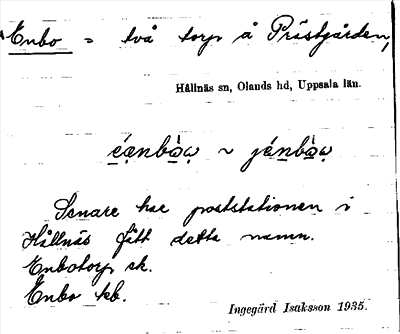 Enbo = två torp å Prästgården,
Hållnäs sn, Olands hd, Uppsala län.
~
Senare har poststationen i
Hållnäs fått detta namn.
Enbotorp ek.
Enbo kb.
Ingegärd Isaksson 1935.